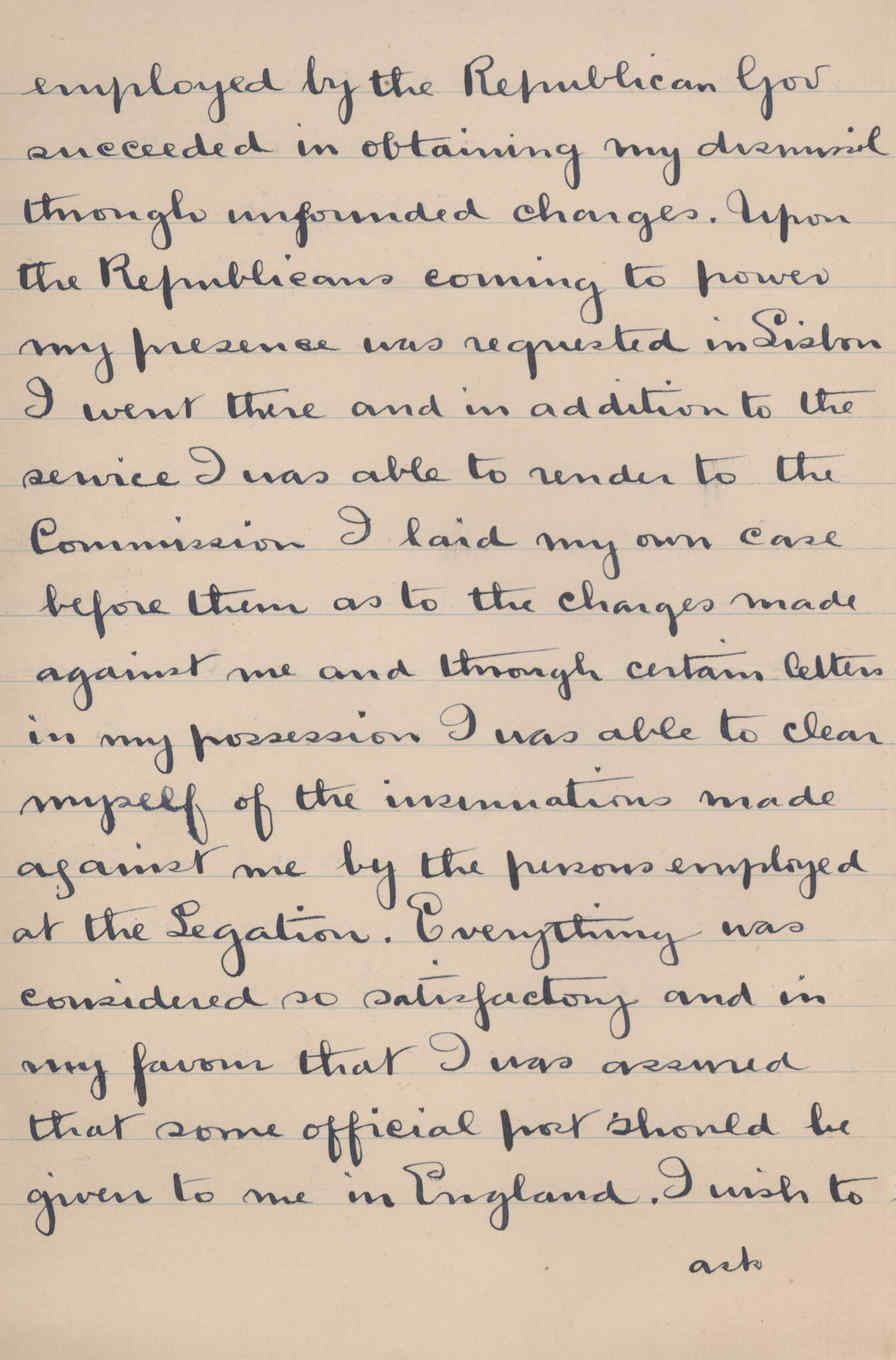 employed by the Republican Gov
succeeded in obtaining my dismissil
through unfounded charges. Upon
the Republicans coming to power
my presence was requested in Lisbon
I went there and in addition to the
service I was able to render to the
Commission I laid my own case
before them as to the charges made
against me and through certain letters
in my possession I was able to clear
myself of the insinuations made
against me by the persons employed
at the Legation. Everything was
considered so satisfactory and in
my favour that I was assured
that some official post should be
given to me in England. I wish to
ask